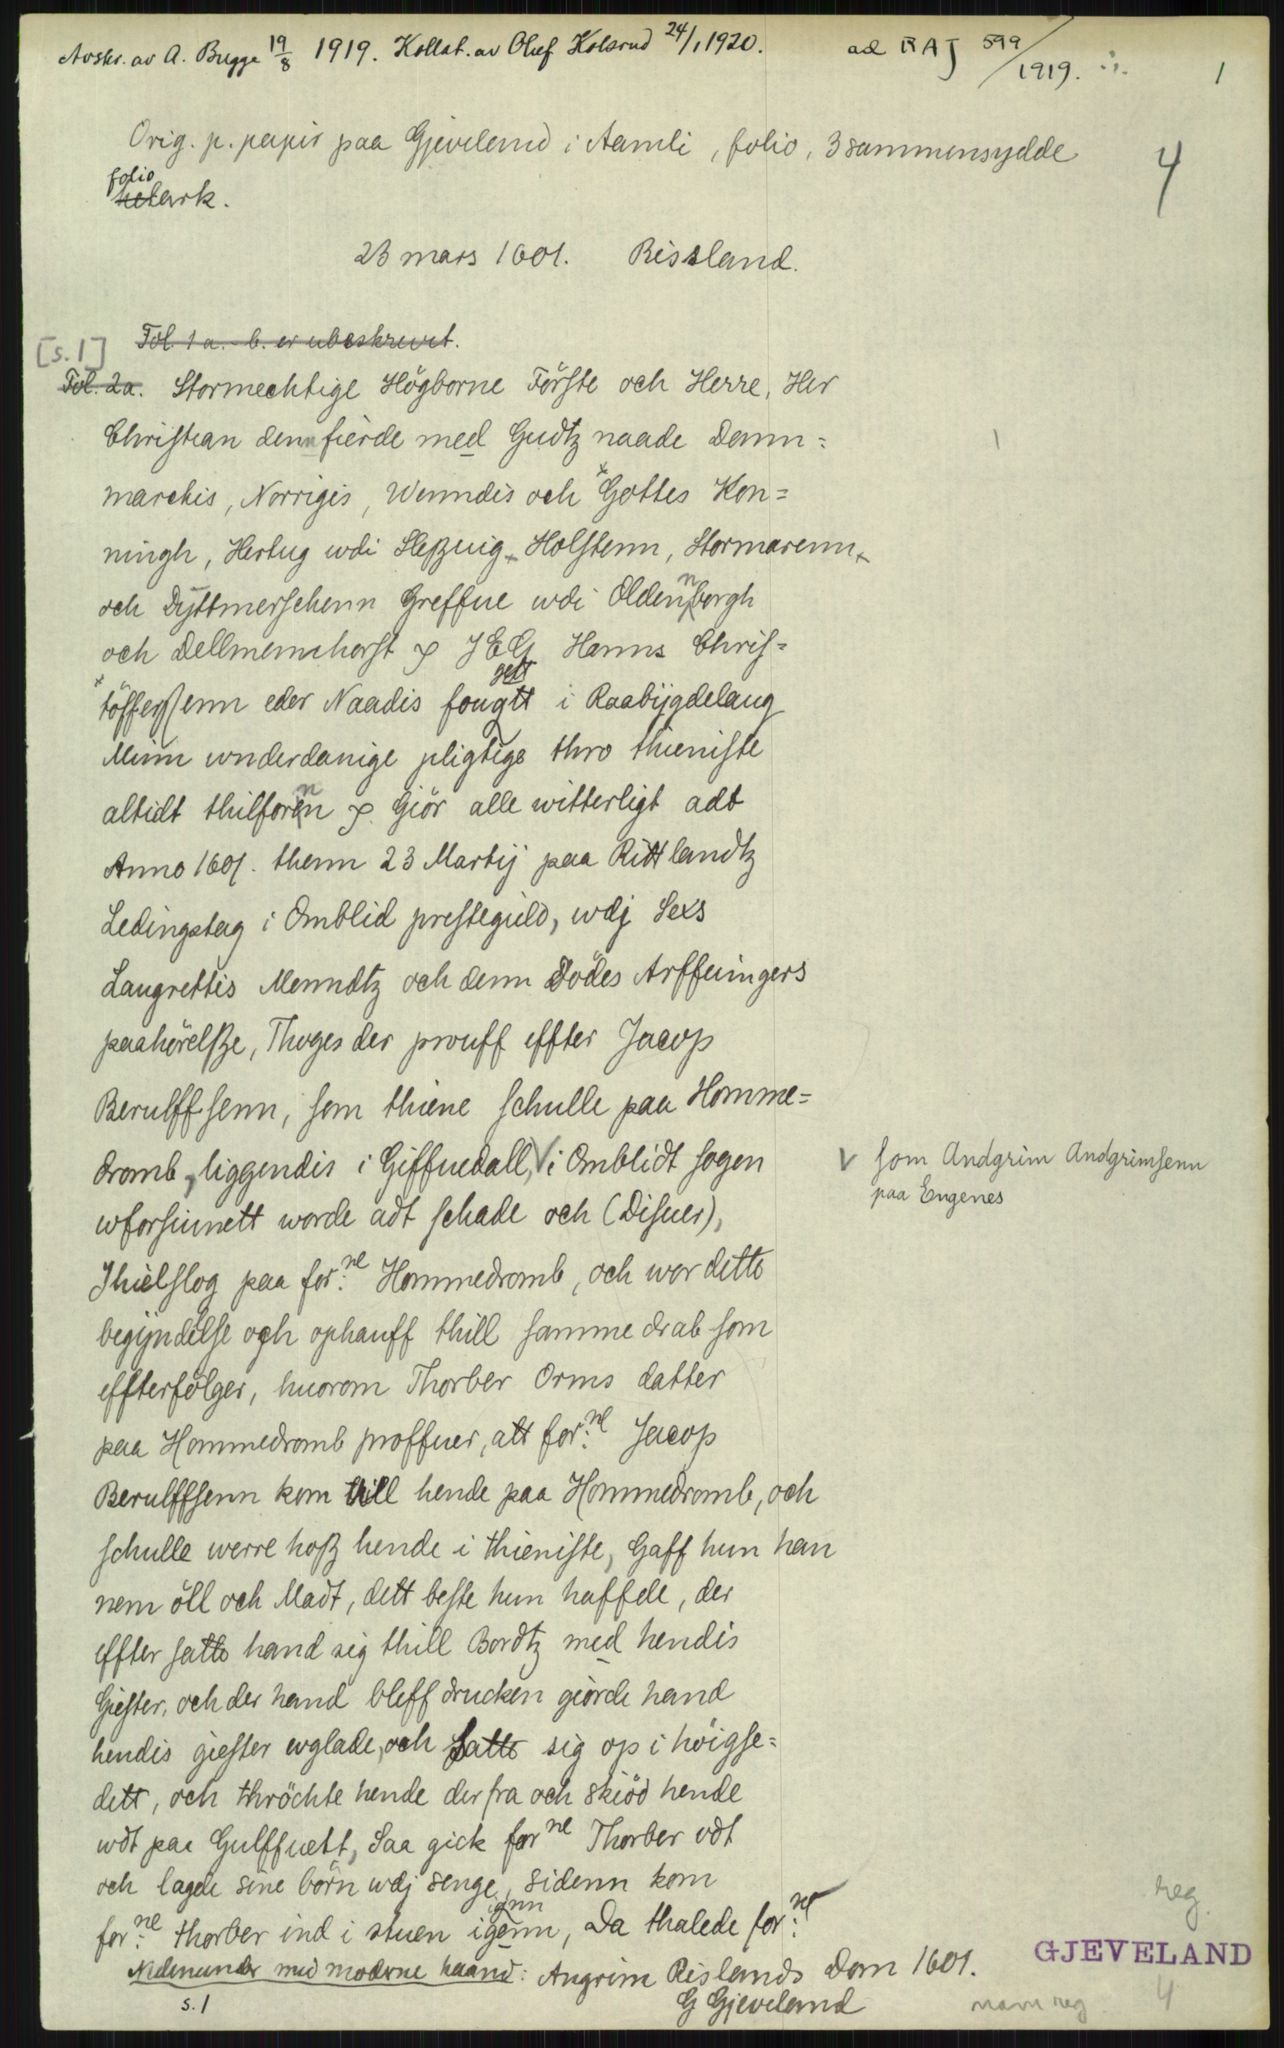 Avskr. av A. Bugge 19/8 1919. Kollat. av Oluf Kolsrud 24/1 1920. ad RAJ 599/1919. 1
Orig. p. papir paa Gjeveland i Aamli, folio, 3 sammensydde
folio
helark.
4
23 mars 1601. Rissland.
Fol. 1 a.-b. er ubeskrevet.
[s. 1]
Fol. 2a. Stormechtige Högborne Förste och Herre, Her
Christian denn fierde med Gudtz naade Dann=
marckis, Norrigis, Wenndis och Gottes Kon=
ningh, Hertug wdi Sleßuig, Holstenn, Stormarenn
och Dÿttmerschenn Greffue wdi Oldennborgh
och Dellmennhorst J E G Hanns Chris=
töfferßenn eder Naadis fougtt i Raabijgdelaug
gett
Minn wnderdanige pligtige thro thieniste
altidt thilforn Giör alle witterligt adt
Anno 1601. thenn 23 Martij paa Rittlandtz
Ledingstag i Omblid prestegield, wdj Sexs
Laugrettis Menndtz och denn Dödes Arffuingers
paahörelße, Thoges der prouff effter Jacop
Berulffsenn, som thiene schulle paa Homme=
dromb, liggendis i Giffuedall, V i Omblidt sogen
V som Andgrim Andgrimsenn
paa Engenes
wforsiunett worde adt schade och (Disuer),
Jhielslog paa for:ne Hommedromb, och wor dette
begÿndelse och ophauff thill samme drab som
effterfölger, huorom Thorber Orms datter
paa Hommedromb proffuer, att for:ne Jacop
Berulffsenn kom till hende paa Hommedromb, och
schulle werre hoß hende i thieniste, Gaff hun han
nem öll och Madt, dett beste hun haffde, der
effter satte hand sig thill Bordtz med hendis
Giester, och der hand bleff drucken giorde hand
hendis giester wglade, och Satte sig op i höigse=
dett, och thröchte hende der fra och skiöd hende
wdt paa Gulffuett, Saa gick for ne Thorber vdt
och lagde sine börn wdj senge, sidenn kom
for:ne thorber ind i stuen igenn, Da thalede for:ne
Nedenunder med moderne haand: Angrim Rislands Dom 1601.
G Gjeveland
s. 1
reg.
GJEVELAND
navnreg. 4